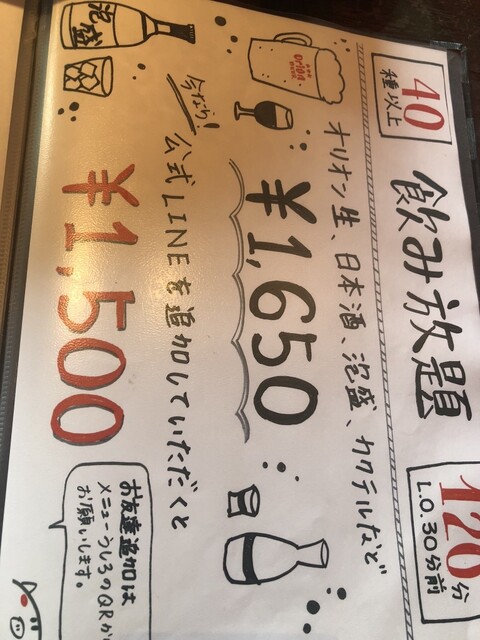 40
種以上
飲み放題
120分
L.O.30分前
オリオン生、日本酒、泡盛、カクテルなど
Orion
¥1,650
今なら!
公式LINEを追加していただくと
¥1,500
泡盛
お友達追加は
メニューうしろのQRか
お願いします。